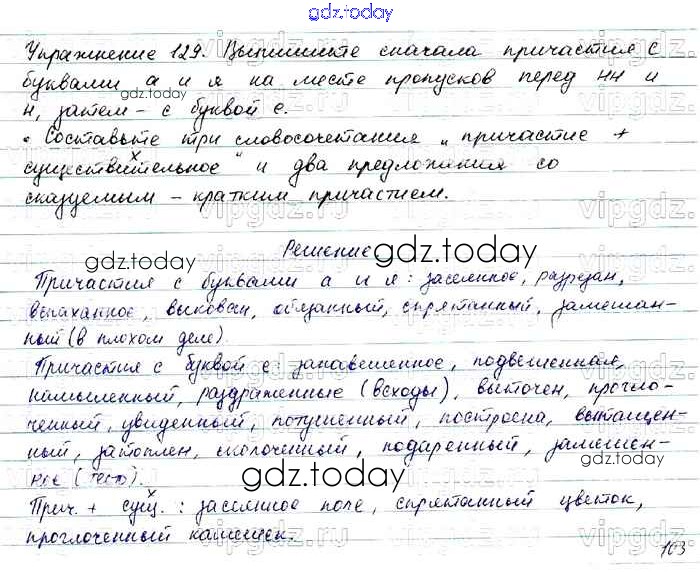 gdz.today
Упражнение 129. Выпишите сначала причастия с
буквами а и я на месте пропусков перед нн и
gdz.today
н, затем – с буквой е.
• Составьте три словосочетания „ причастие +
существительное " и два предложения со
сказуемым – кратким причастием.
gdz.today
Решение
gdz.today
Причастия с буквами а и я: засеянное, разрезан,
вспаханное, выкован, обязанный, спрятанный, замешан-
ный (в плохом деле).
Причастия с буквой е занавешенное, подвешенная,
намыленный, раздраженные (всходы), выточен, прогло-
ченный, увиденный, потушенный, построена, вытащен-
ный, затоплен, сколоченный, подаренный, замешен-
ное (тесто).
gdz.today
gdz.today
Прич. + сущ. : засеянное поле, спрятанный цветок,
проглоченный камешек.
103
vipgdz.ru